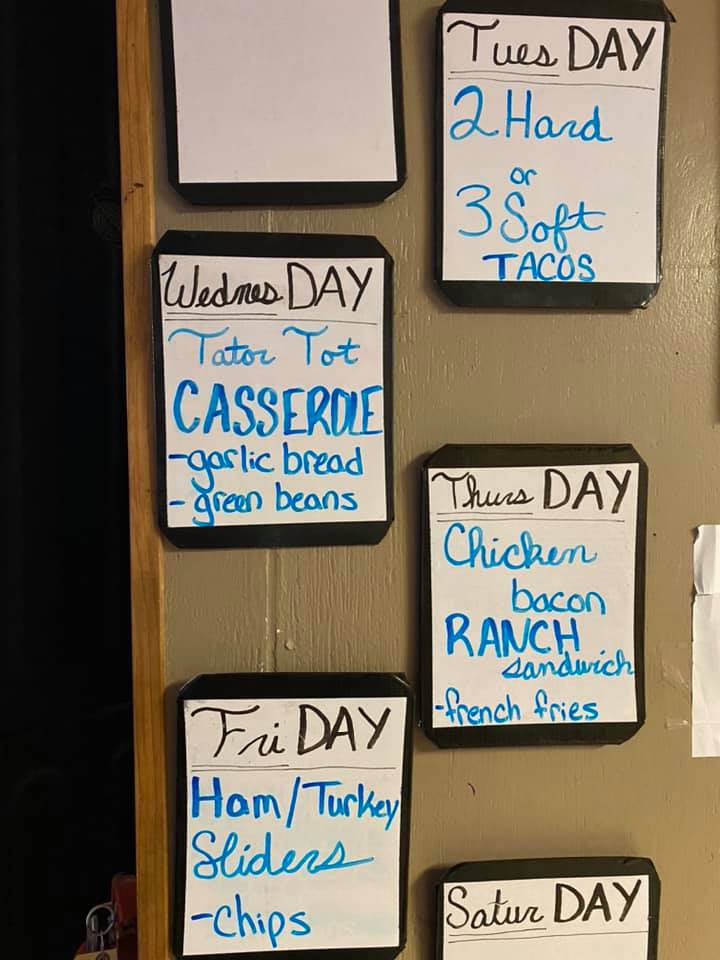 Tues DAY
2 Hard
or
3 Soft
TACOS
Wednes DAY
Tator Tot
CASSEROLE
-garlic bread
-green beans
Thurs DAY
Chicken
bacon
RANCH
sandwich
-french fries
Fri DAY
Ham/Turkey
Sliders
-chips
Satur DAY